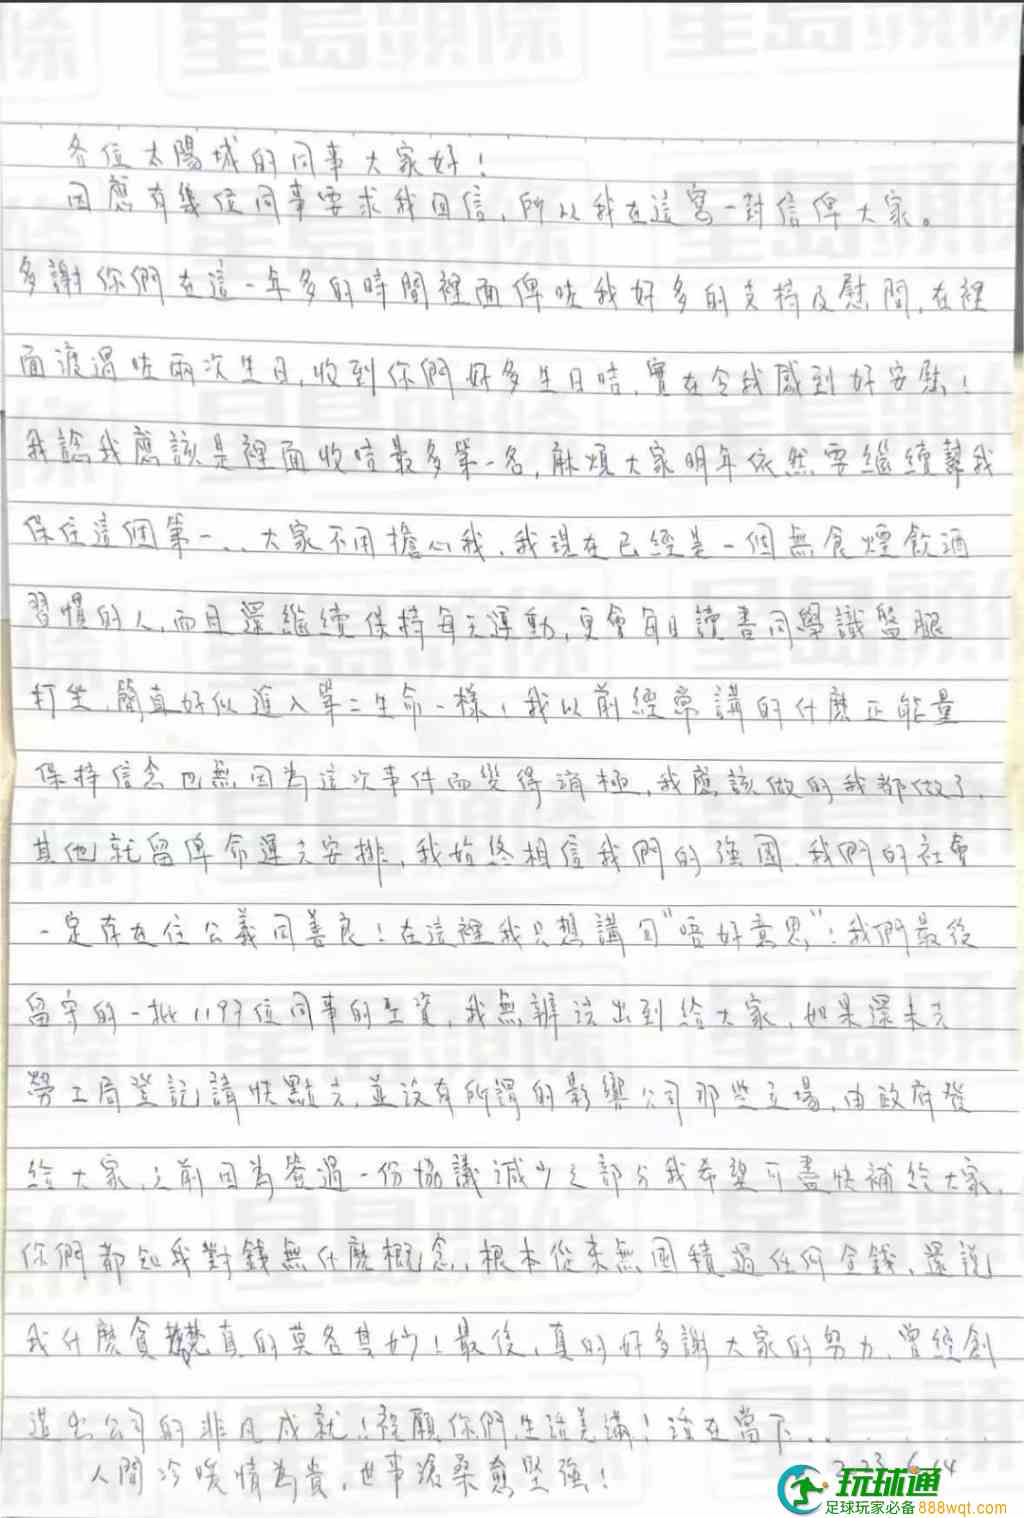 各位太陽城的同事大家好！
因應有幾位同事要求我回信，所以我在這寫一封信俾大家。
多謝你們在這一年多的時間裡面俾咗我好多的支持及慰問，在裡
面渡過咗兩次生日，收到你們好多生日咭，實在令我感到好安慰！
我諗我應該是裡面收咭最多第一名，麻煩大家明年依然要繼續幫我
保住這個第一... 大家不用擔心我，我現在已經是一個無食煙飲酒
習慣的人，而且還繼續保持每天運動，更會每日讀書同學識盤腿
打坐，簡直好似進入第二生命一樣，我以前經常講的什麼正能量
保持信念也無因為這次事件而變得消極，我應該做的我都做了，
其他就留俾命運去安排，我始終相信我們的強國，我們的社會
一定存在住公義同善良！在這裡我只想講句"唔好意思"！我們最後
留守的一批1197位同事的工資，我無辦法出到給大家，如果還未去
勞工局登記請快點去，並沒有所謂的影響公司那些立場，由政府發
給大家，之前因為簽過一份協議減少之部分我希望可盡快補給大家，
你們都知我對錢無什麼概念，根本從來無囤積過任何金錢，還說
我什麼貪婪真的莫名其妙！最後，真的好多謝大家的努力，曾經創
造出公司的非凡成就！祝願你們生活美滿！活在當下........
人間冷暖情為貴，世事滄桑愈堅強！
玩球通
足球玩家必备 888wqt.com
星島頭條